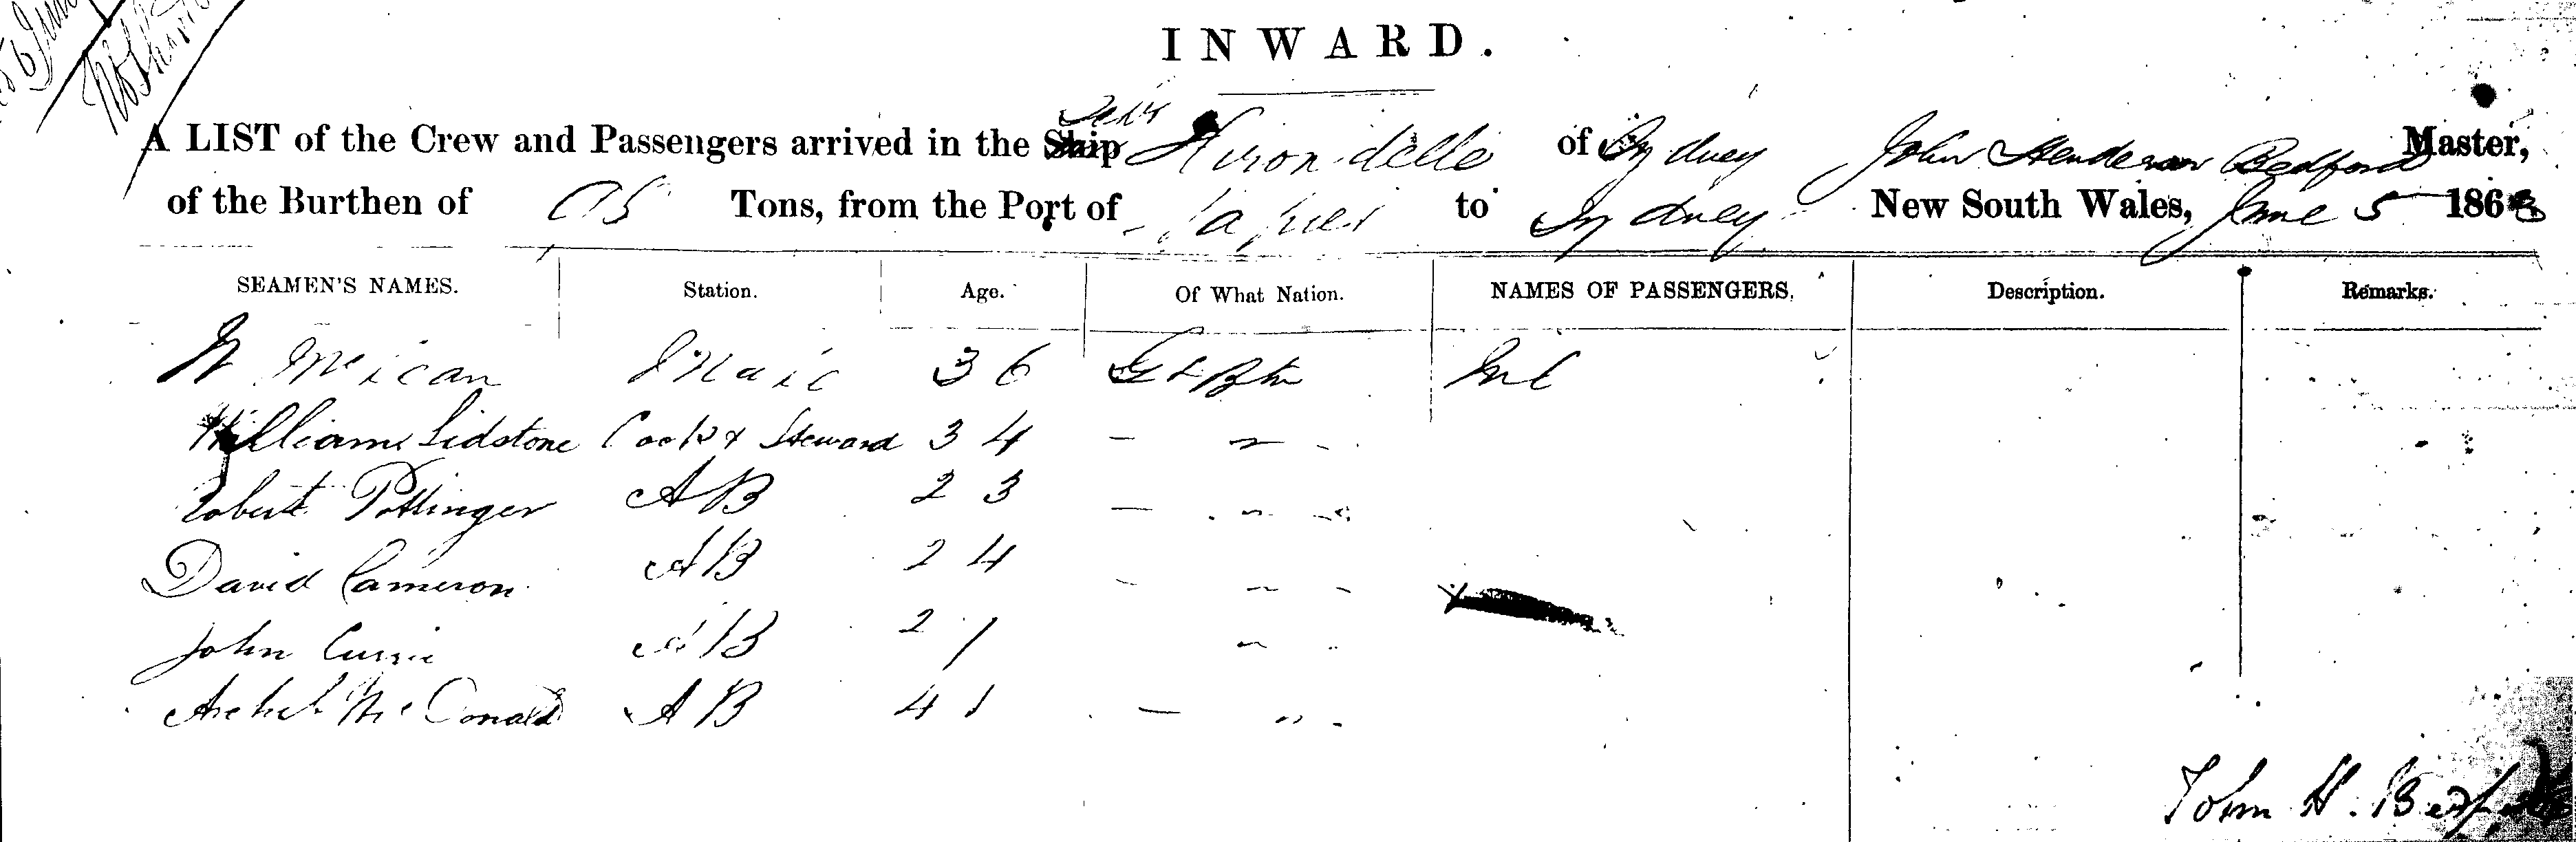 INWARD.
A LIST of the Crew and Passengers arrived in the Ship Schr Hirondelle of Sydney John Henderson Bedford Master,
of the Burthen of Tons, from the Port of Napier to Sydney New South Wales, June 5 1868
SEAMEN'S NAMES. Station. Age. Of What Nation. NAMES OF PASSENGERS. Description. Remarks.
W Mate 36 Gt Btn Nil
William Lidstone Cook & Steward 34 - " -
Robert Pottinger AB 23 - " -
David Cameron AB 24 - " -
John Currie AB 21 " -
Archd McDonald AB 41 - " -
John H. Bedford